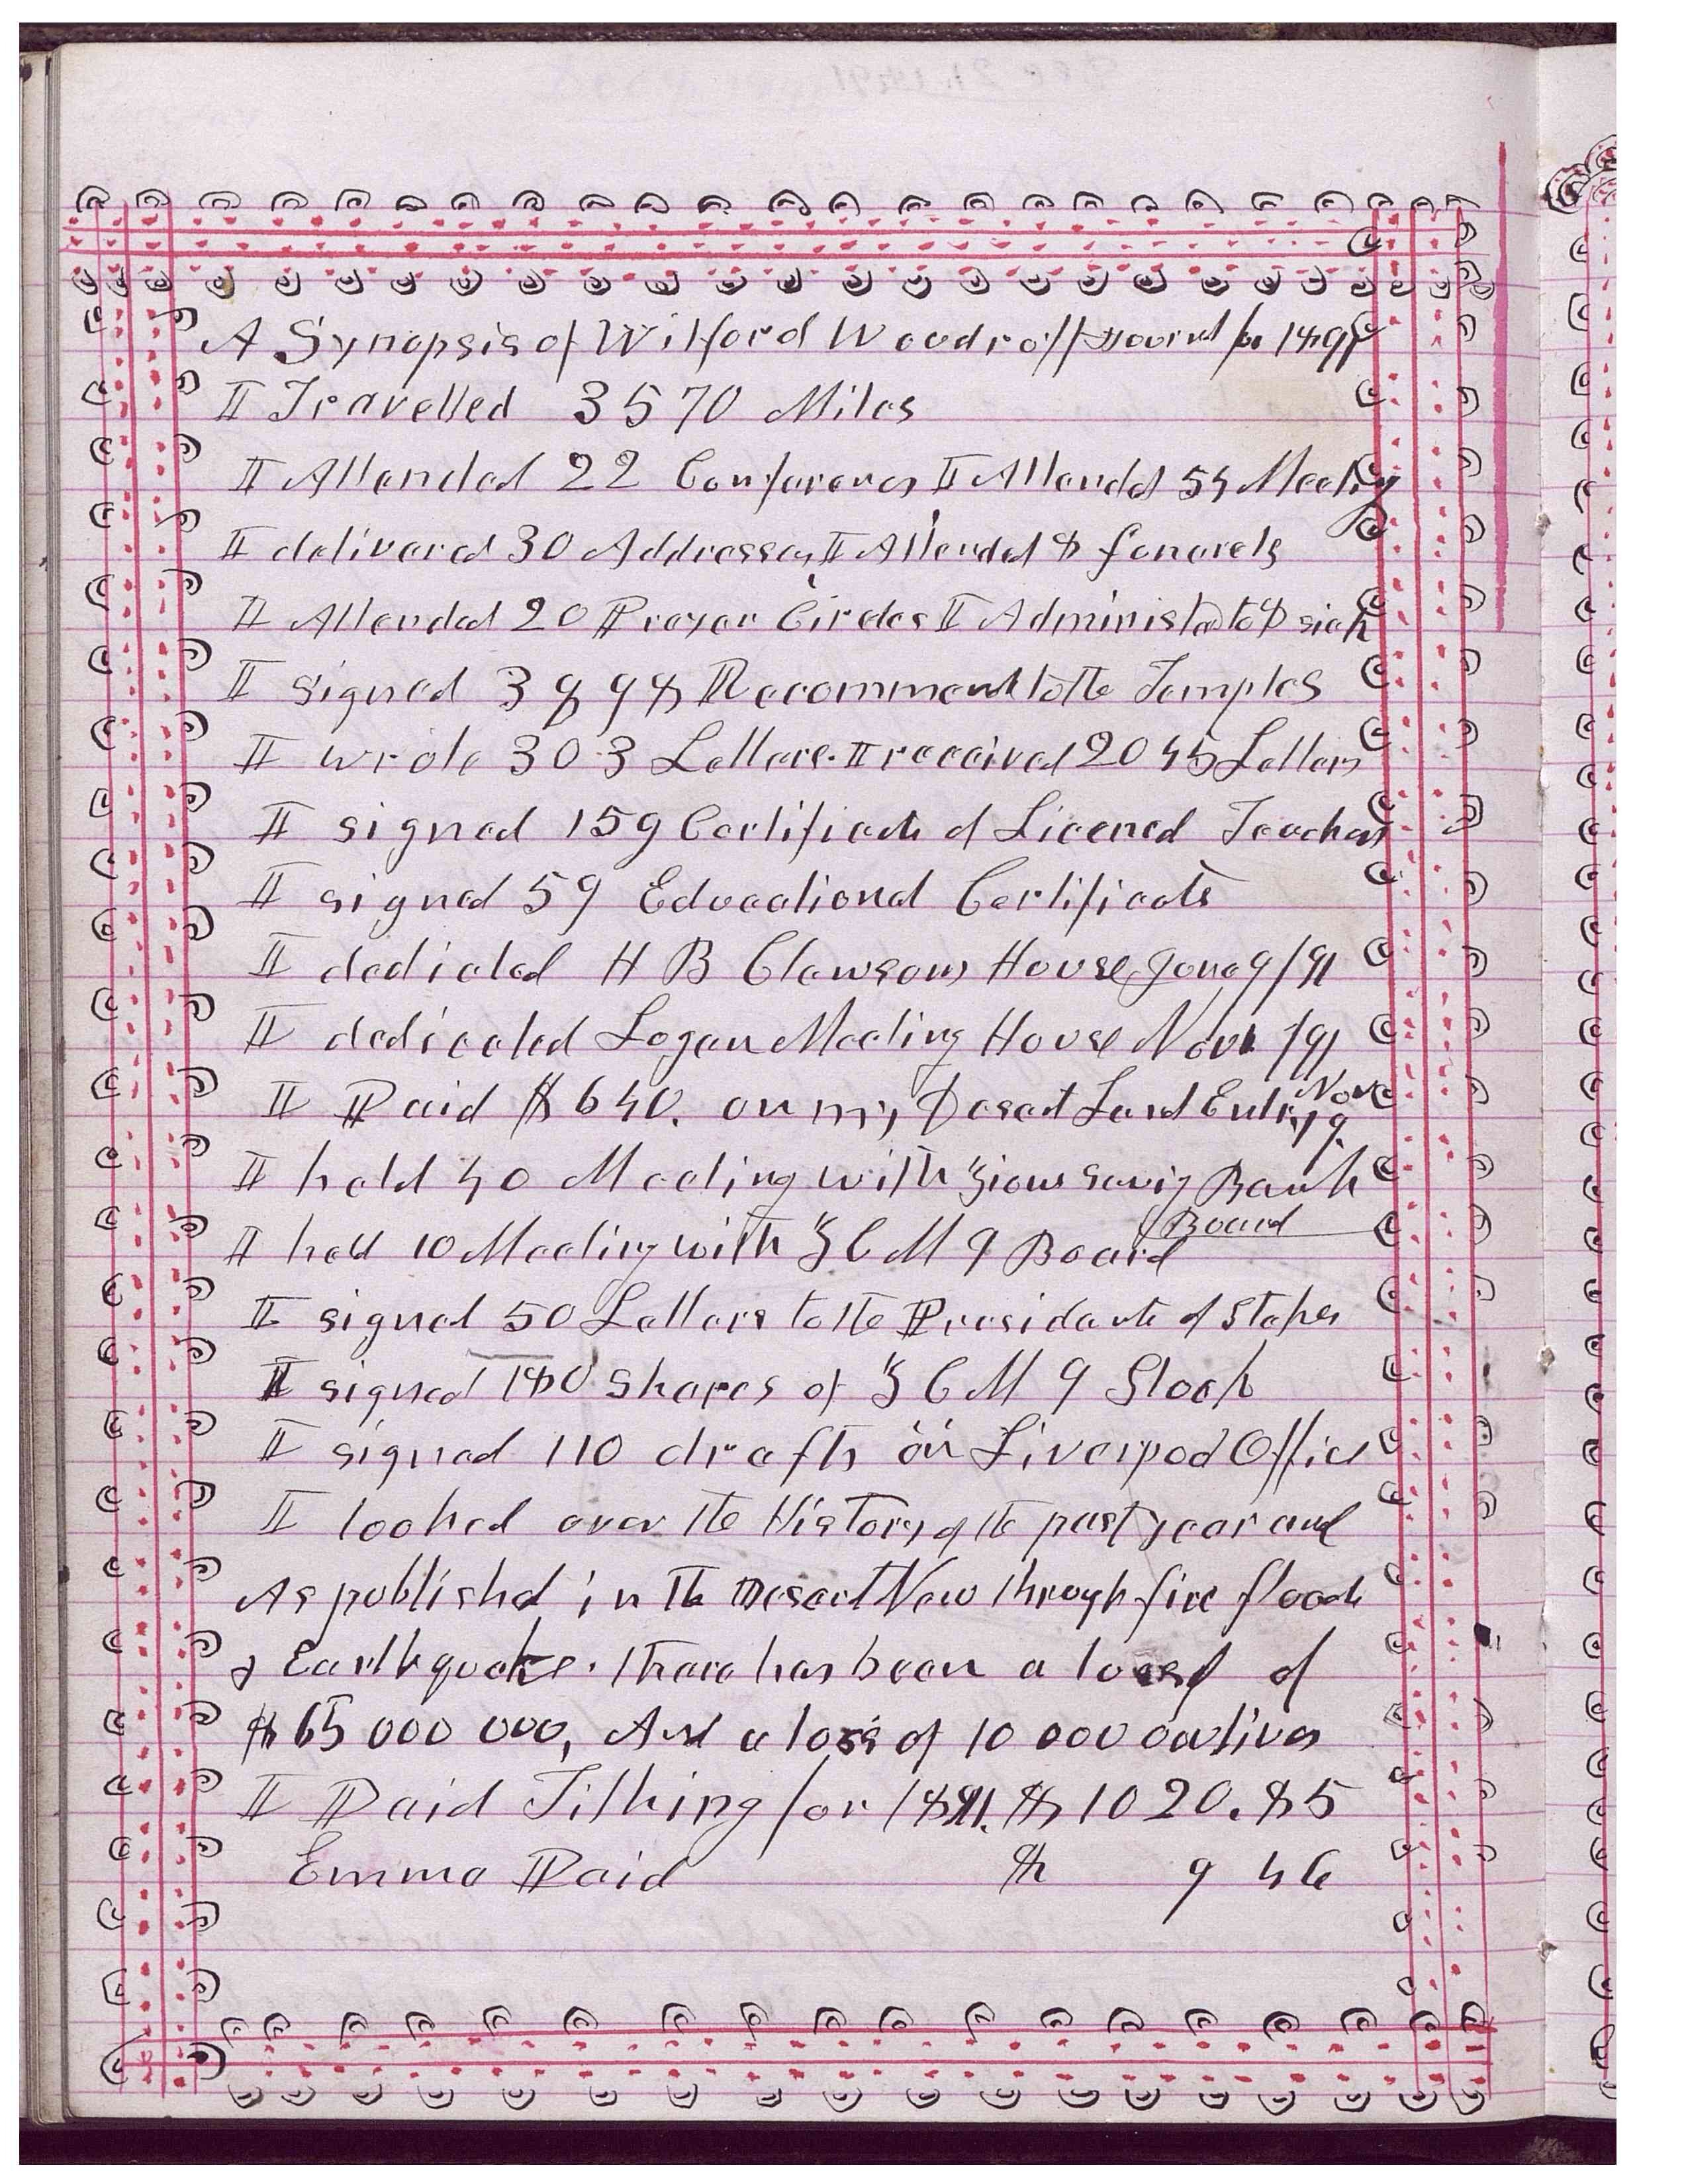 A Synopsis of Wilford Woodruff Journal for 1891
I Travelled 3570 Miles
I Attended 22 Conferences I Attended 54 Meeting
I delivered 30 Addresses, I Attended 8 funerels
I Attended 20 Prayer Circles I Administed to 8 sick
I signed 3898 Recommend to the Temples
I wrote 303 Letters. I received 2045 Letters
I signed 159 Certificate of Licened Teachers
I signed 59 Educational Certificats
I dedicated H B Clawsons House June 9/91
I dedicated Logan Meeting House Nov 1/91
I Paid $640. on my Desert Land Entry Nov
19.
I held 40 Meeting with Zions Savig Bank
Board
I held 10 Meeting with Z C M I Board
I signed 50 Letters to the Presidents of Stakes
I signed 180 Shares of Z C M I Stock
I signed 110 drafts on Liverpool Office
I looked over the History of the past year and
As published in the Desert New through fire floods
& Earthquake. there has been a loss of
$65 000 000, And a loss of 10 000 000 lives
I Paid Tithing for 1891. $1020.85
Emma Paid $ 9 46